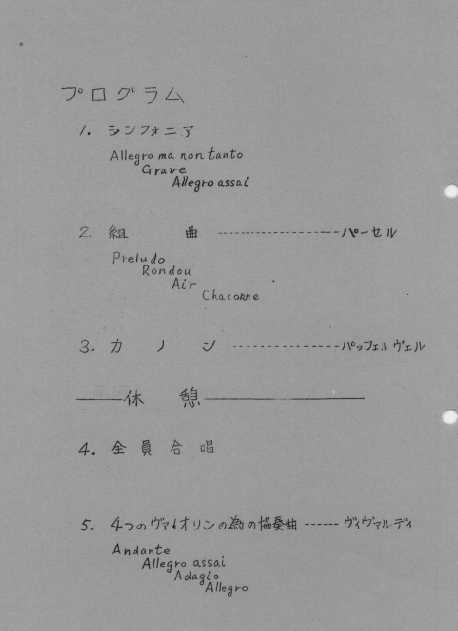 プログラム
1. シンフォニア
Allegro ma non tanto
Grave
Allegro assai
2. 組 曲 ------------------ パーセル
Preludo
Rondou
Air
Chaconne
3. カ ノ ン --------------- パッフェルヴェル
休 憩
4. 全 員 合 唱
5. 4つのヴァイオリンの為の協奏曲 ------ ヴィヴァルディ
Andante
Allegro assai
Adagio
Allegro